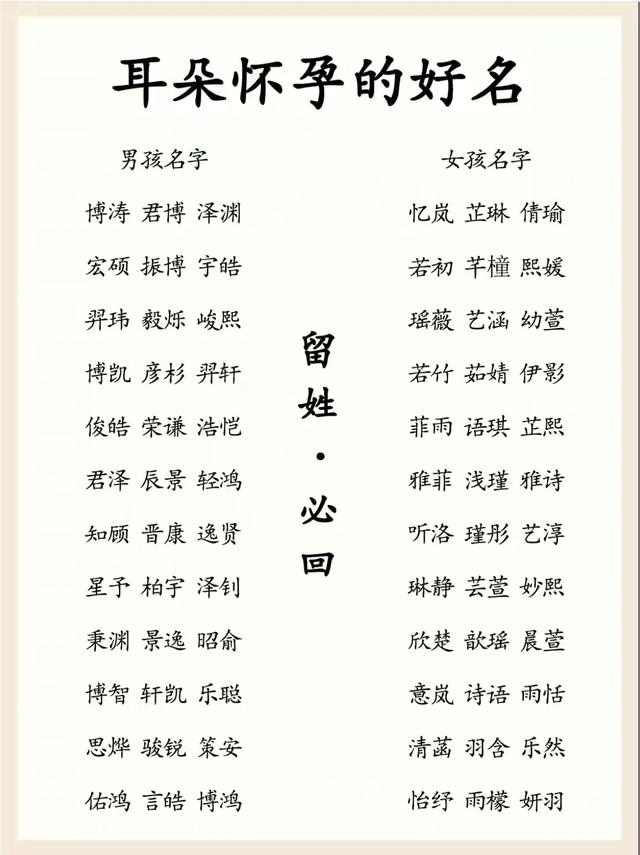 耳朵怀孕的好名
男孩名字
博涛 君博 泽渊
宏硕 振博 宇皓
羿玮 毅烁 峻熙
博凯 彦杉 羿轩
俊皓 荣谦 浩恺
君泽 辰景 轻鸿
知顾 晋康 逸贤
星予 柏宇 泽钊
秉渊 景逸 昭俞
博智 轩凯 乐聪
思烨 骏锐 策安
佑鸿 言皓 博鸿
留姓·必回
女孩名字
忆岚 芷琳 倩瑜
若初 芊橦 熙媛
瑶薇 艺涵 幼萱
若竹 茹婧 伊影
菲雨 语琪 芷熙
雅菲 浅瑾 雅诗
听洛 瑾彤 艺淳
琳静 芸萱 妙熙
欣楚 歆瑶 晨萱
意岚 诗语 雨恬
清菡 羽含 乐然
怡纾 雨檬 妍羽